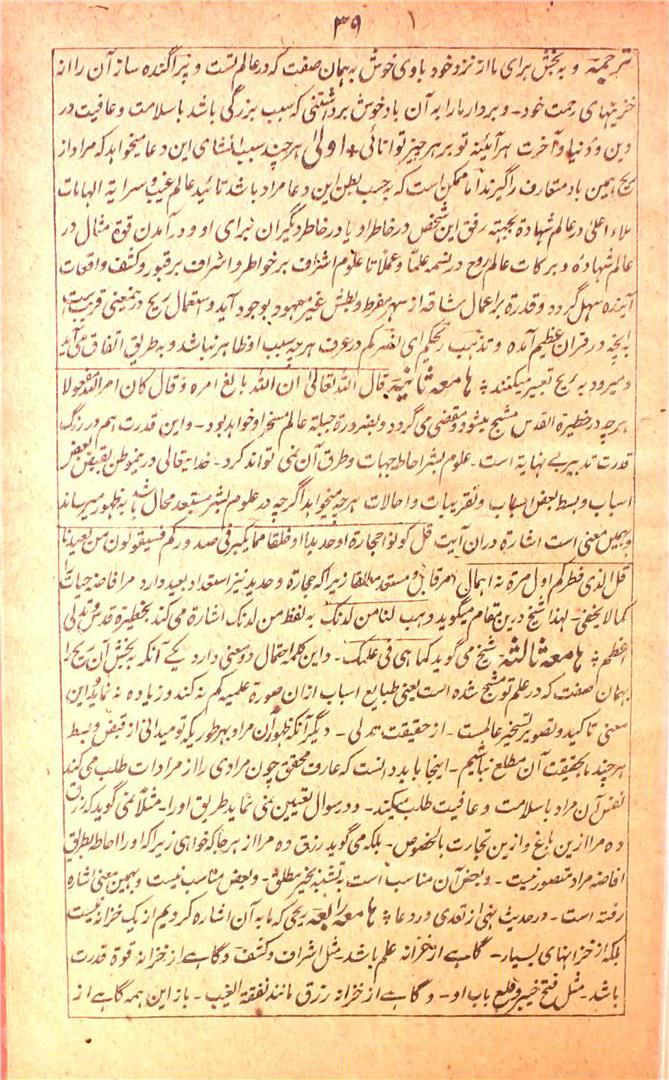 ۳۹
ترجمہ و بہ بخش برای ما از نزد خود بادی خوش بہ ہمان صفت کہ در عالم تست و پراگندہ ساز آن را از
خزینہای رحمت خود۔ و بردار مارا بہ آن باد خوش برداشتنی کہ سبب بزرگی باشد با سلامت و عافیت در
دین و دنیا و آخرت ہر آئینہ تو بر ہر چیز توانائی + اولیٰ ہر چند سبب انشای این دعا میخواہد کہ مراد از
ریح ہمین باد متعارف را گیرند اما ممکن است کہ بہ حسب بطن این دعا مراد باشد تائید عالم غیب و سرایۃ الہامات
ملاء اعلیٰ در عالم شہادۃ بجہتہ رفق این شخص در خاطر او یا در خاطر دگیران برای او و در آمدن قوۃ مثال در
عالم شہادۃ و برکات عالم روح در نسمہ علماً و عملاً تا علوم اشراف بر خواطر و اشراف بر قبور و کشف واقعات
آیندہ سہل گردد و قدرۃ بر اعمال شاقہ از سہر مفرط و بطش غیر معہود بوجود آید و استعمال ریح در ینمعنی قریب است
بانچہ در قران عظیم آمدہ و تذہب ریحکم ای نصرکم در عرف ہر چہ سبب او ظاہر نباشد و بہ طریق اتفاق می آید
و میرود بہ ریح تعبیر میکنند ؞ ہامعہ ثانیہ قال اللہ تعالیٰ ان اللہ بالغ امرہ و قال کان امر اللہ مفعولا
ہر چہ در حظیرۃ القدس مشبح میشود و مقضی می گردد و بضرورۃ جبلۃ عالم مسخر او خواہد بود۔ و این قدرت ہم در رنگ
قدرت تدبیر بے نہایۃ است۔ علوم بشر احاطہ جہات و طرق آن نمی تواند کرد۔ خدا تعالی در ینموطن بقبض بعض
اسباب و بسط بعض اسباب و تقریبات و احالات ہر چہ میخواہد اگر چہ در علوم بشر مستبعد محال باشد بہ ظہور میرساند
و بہمین معنی است اشارہ دران آیت قل کونوا حجارۃ او حدیدا او خلقا مما یکبر فی صدورکم فسیقولون من یعیدنا
قل الذی فطرکم اول مرۃ نہ اہمالی زیرا کہ حجارۃ و حدید نیز استعداد بعید دارد مر افاضہ حیات را
کما لا یخفی۔ لہذا شیخ درین مقام میگوید و ہب لنا من لدنک بہ لفظ من لدنک اشارہ می کند بحظیرۃ قدس و تدلی
اعظم ؞ ہامعہ ثالثہ شیخ می گوید کما ہی فی علمک۔ و این کلمہ احتمال دو معنی دارد یکے آنکہ بہ بخش آن ریح را
بہمان صفت کہ در علم تو مشبح شدہ است یعنی طبایع اسباب ازان صورۃ علمیہ کم نہ کند و زیادہ نہ نماید و این
معنی تاکید و تصویر تسخیر عالمست۔ از حقیقت تدلی۔ دیگر آنکہ ظہور آن مراد بہر طوریکہ تو میدانی از قبض و بسط
ہر چند ما بحقیقت آن مطلع نباشیم۔ اینجا باید دانست کہ عارف محقق چون مرادی را از مرادات طلب می کند
نفس آن مراد با سلامت و عافیت طلب میکند۔ و در سوال تعیین نمی نماید طریق او را۔ مثلاً نمی گوید کہ رزق
دہ مرا ازین باغ و ازین تجارت بالخصوص۔ بلکہ می گوید رزق دہ مرا از ہر جا کہ خواہی زیرا کہ او را احاطہ بطریق
افاضہ مراد متصور نیست۔ و بعض آن مناسب است بہ تشبہ بخیر مطلق۔ و بعض مناسب نیست و بہمین معنی اشارہ
رفتہ است۔ در حدیث نہی از تعدی در دعا ؞ ہامعہ رابعہ ریحی کہ ما بہ آن اشارہ کردیم از یک خزانہ نیست
بلکہ از خزانہای بسیار۔ گاہے از خزانہ علم باشد۔ مثل اشراف و کشف و گاہے از خزانہ قوۃ قدرت
باشد۔ مثل فتح خیبر و قلع باب او۔ و گاہے از خزانہ رزق مانند نفقۃ الغیب۔ باز این ہمہ گاہے از